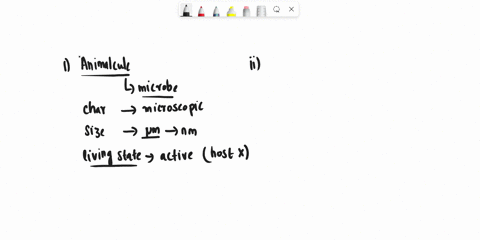 i) Animalcule
ii)
↳ microbe
char → microscopic
size → µm → nm
living state → active (host X)